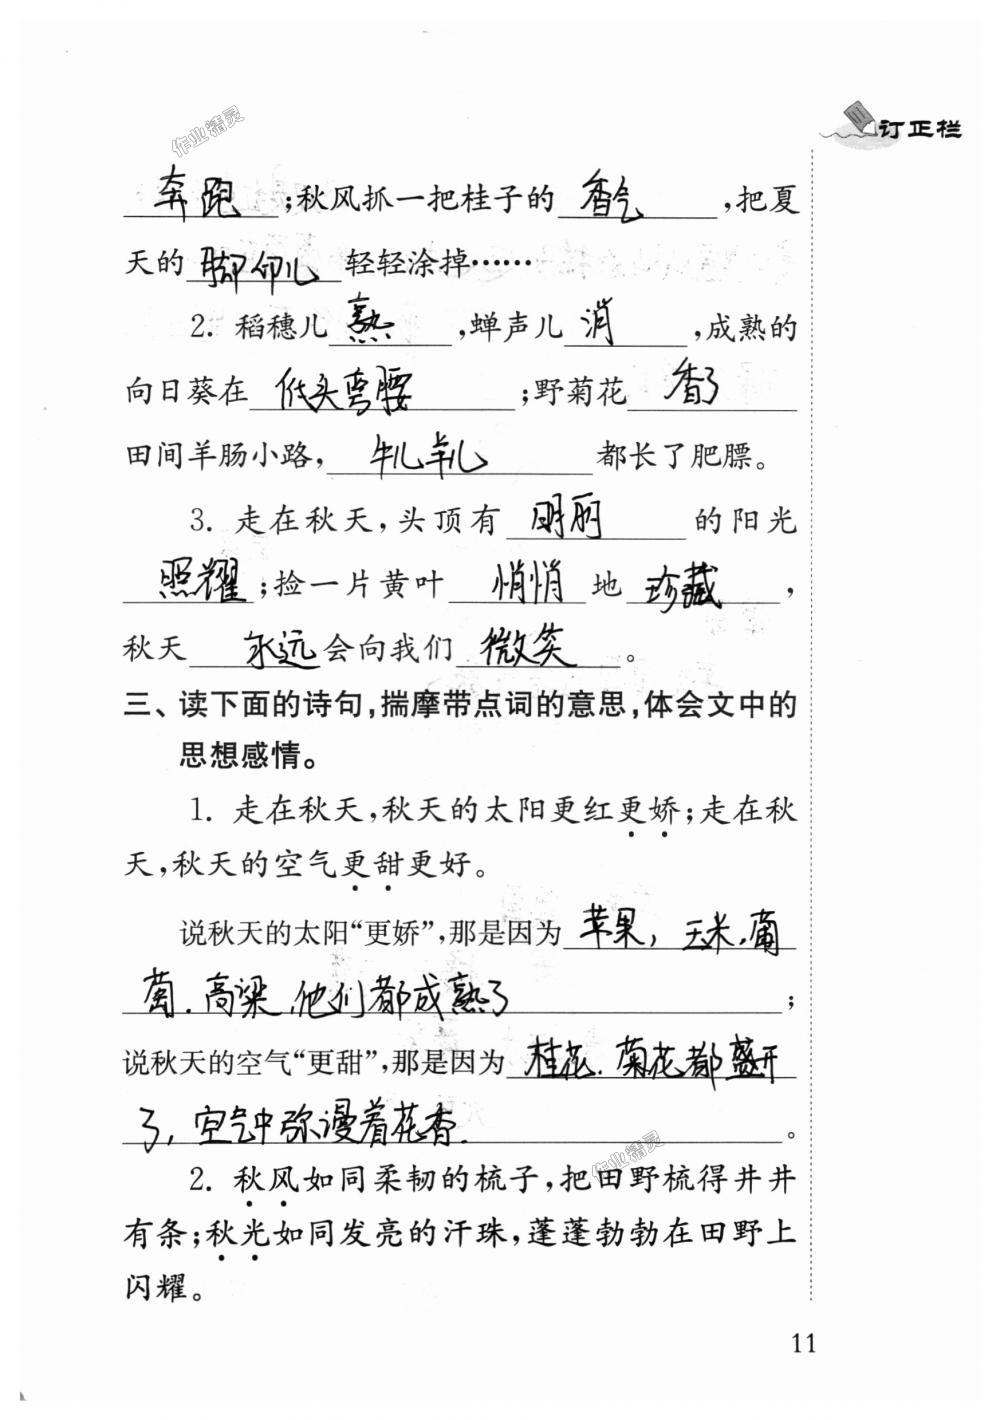 作业精灵
订正栏
奔跑;秋风抓一把桂子的香气,把夏
天的脚印儿轻轻涂掉……
2. 稻穗儿熟,蝉声儿消,成熟的
向日葵在低头弯腰;野菊花香了
田间羊肠小路,牛儿羊儿都长了肥膘。
3. 走在秋天,头顶有明丽的阳光
照耀;捡一片黄叶悄悄地珍藏,
秋天永远会向我们微笑。
三、读下面的诗句,揣摩带点词的意思,体会文中的
思想感情。
1. 走在秋天,秋天的太阳更红更娇;走在秋
天,秋天的空气更甜更好。
说秋天的太阳“更娇”,那是因为苹果,玉米,葡
萄.高粱,他们都成熟了;
说秋天的空气“更甜”,那是因为桂花.菊花都盛开
了,空气中弥漫着花香.。
作业精灵
2. 秋风如同柔韧的梳子,把田野梳得井井
有条;秋光如同发亮的汗珠,蓬蓬勃勃在田野上
闪耀。
11